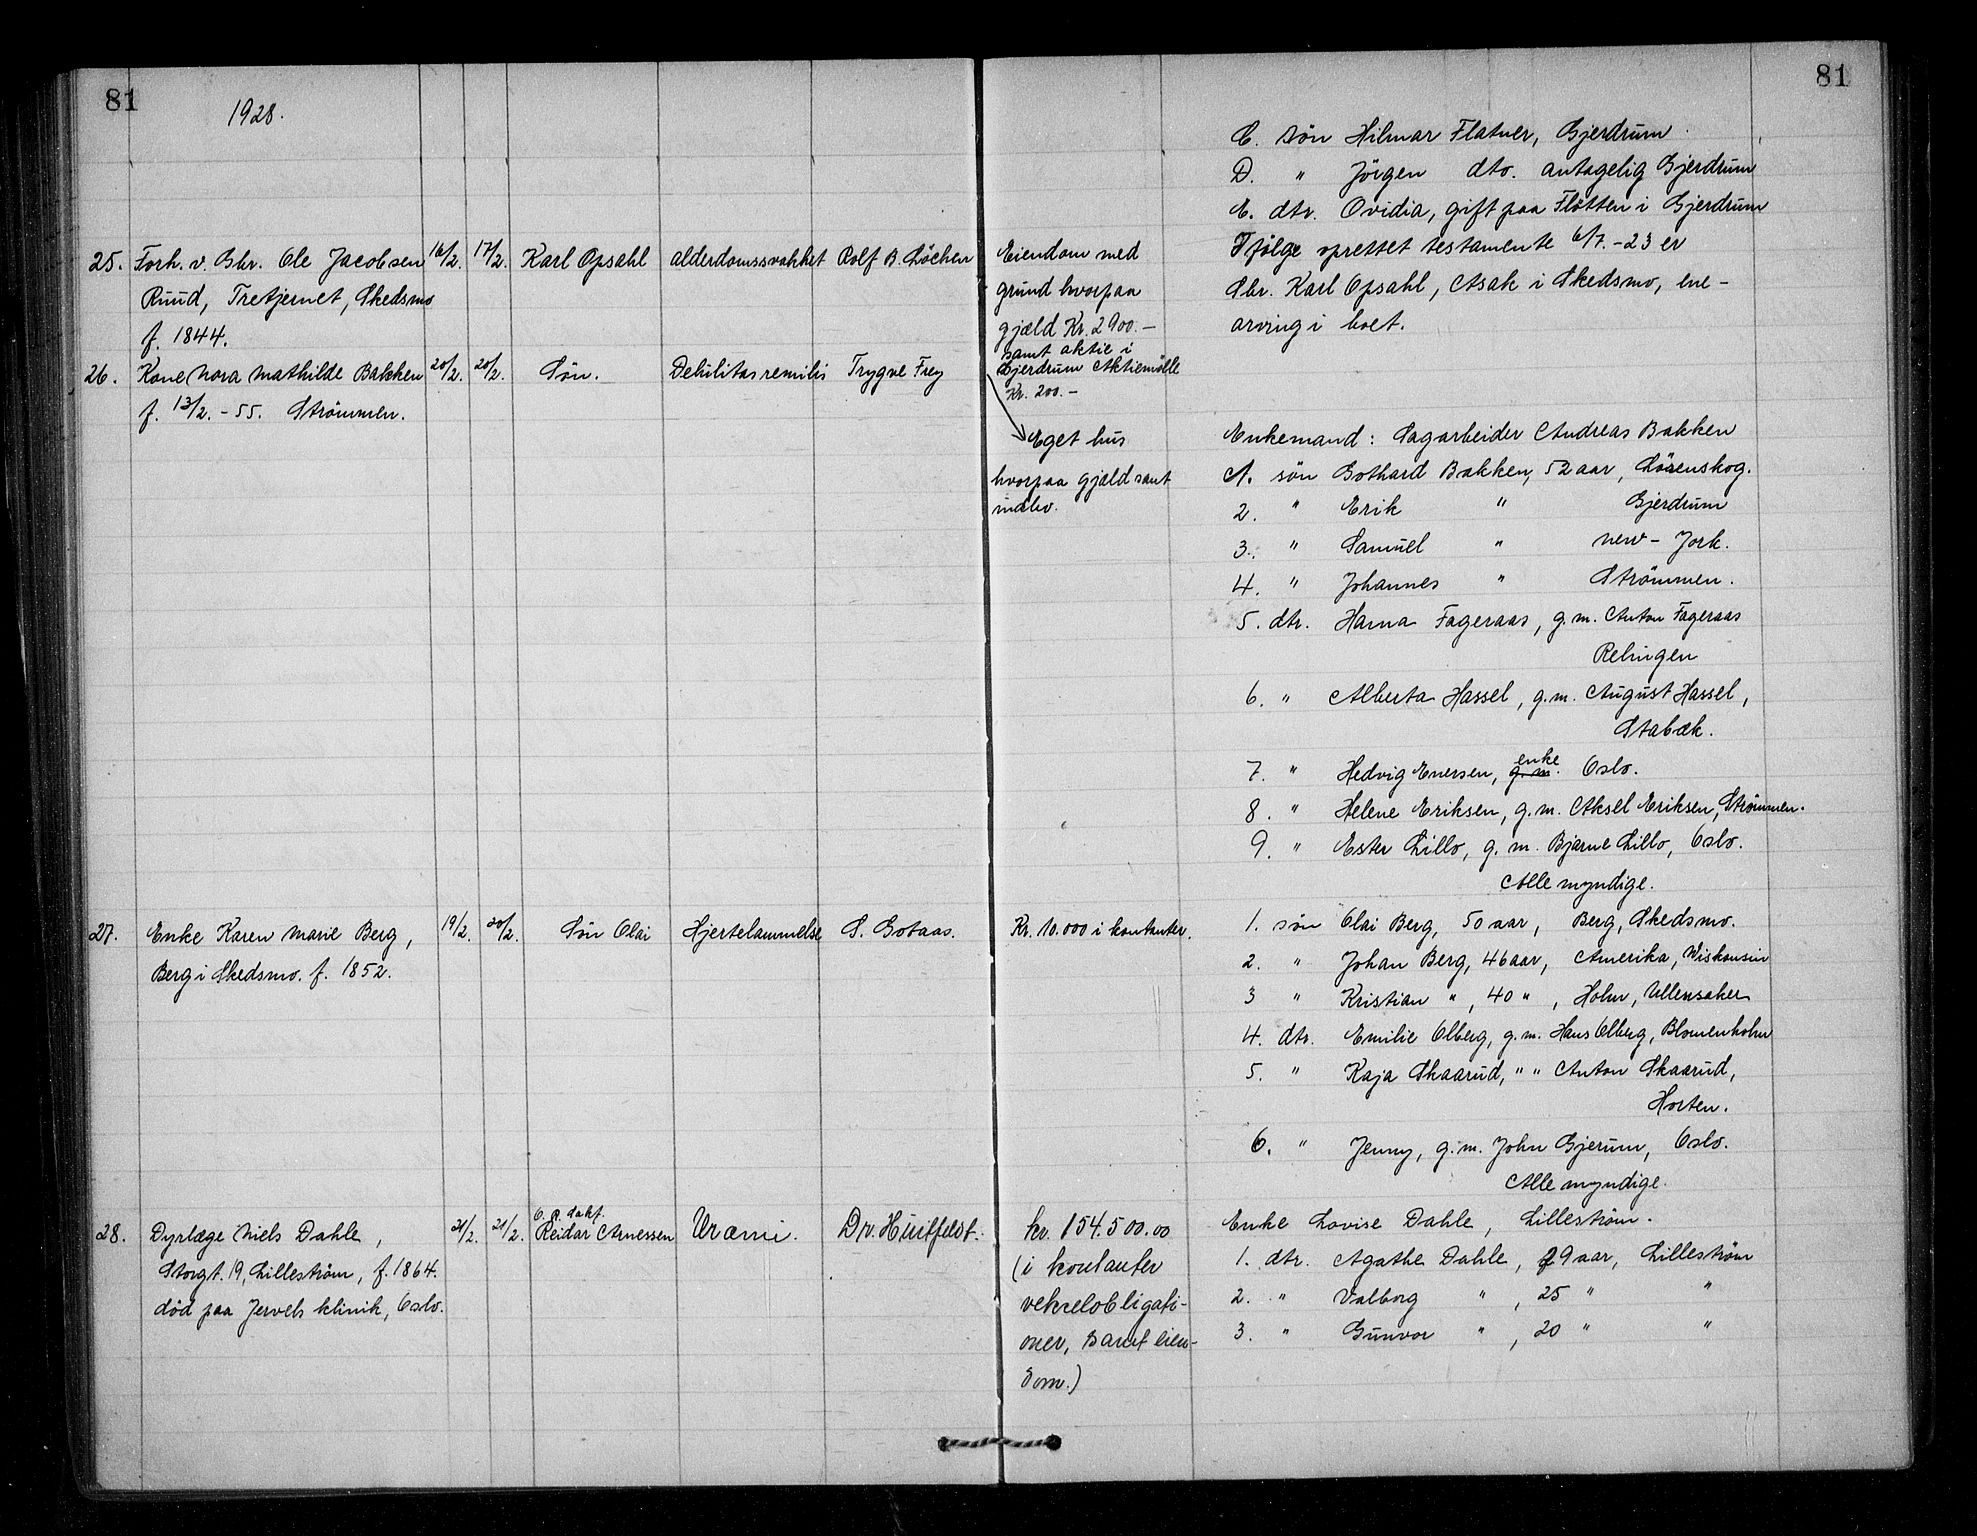 81
1928.
25. Forh. v. Gbr. Ole Jacobsen 16/2. 17/2. Karl Opsahl alderdomssvakhet Rolf B. Löchen
Ruud, Tretjernet, Skedsmo
f. 1844.
26. Kone Nora Mathilde Bakken 20/2. 20/2. Sön. Debilitas senilis Trygve Frey
f. 13/2. - 55. Strömmen.
27. Enke Karen Marie Berg, 19/2. 20/2. Sön Olai Hjertelammelse S. Gotaas.
Berg i Skedsmo. f. 1852.
28. Dyrlæge Niels Dahle, 21/2. 21/2. Reidar Arnessen Uræmi. Dr. Huitfeldt.
Storgt. 19, Lilleström, f. 1864.
död paa Jervels klinik, Oslo.
81
Eiendom med
grund hvorpaa
gjæld Kr. 2900.—
samt aktie i
Gjerdrum Aktiemölle
Kr. 200.—
Eget hus
hvorpaa gjæld samt
indbo.
Kr. 10.000 i kontanter.
kr. 154.500.00
(i kontanter
vekselobligati-
oner, samt eien-
dom.)
C. sön Hilmar Flatner, Gjerdrum
D. " Jörgen dto. antagelig Gjerdrum
E. dtr. Ovidia, gift paa Flötten i Gjerdrum
Ifölge oprettet testamente 6/7. - 23 er
Gbr. Karl Opsahl, Asak i Skedsmo, ene-
arving i boet.
Enkemand: Sagarbeider Andreas Bakken
1. sön Gothard Bakken, 52 aar, Lörenskog.
2. " Erik " Gjerdrum
3. " Samuel " New-York.
4. " Johannes " Strömmen.
5. dtr. Hanna Fageraas, g.m. Anton Fageraas
Relingen
6. " Alberta Hassel, g.m. August Hassel,
Stabæk.
7. " Hedvig Enersen, g.m. enke Oslo.
8. " Helene Eriksen, g.m. Aksel Eriksen, Strömmen.
9. " Ester Lillo, g.m. Bjarne Lillo, Oslo.
Alle myndige.
1. sön Olai Berg, 50 aar, Berg, Skedsmo.
2. " Johan Berg, 46 aar, Amerika, Wiskonsin
3 " Kristian ", 40 ", Holm, Ullensaker
4. dtr. Emilie Olberg, g.m. Hans Olberg, Blomenholm
5. " Kaja Skaarud, " " Anton Skaarud,
Horten.
6. " Jenny, g.m. John Gjerum, Oslo.
Alle myndige.
Enke Lovise Dahle, Lilleström.
1. dtr. Agathe Dahle, 29 aar, Lilleström
2. " Valborg ", 25 " "
3. " Gunvor ", 20 " "